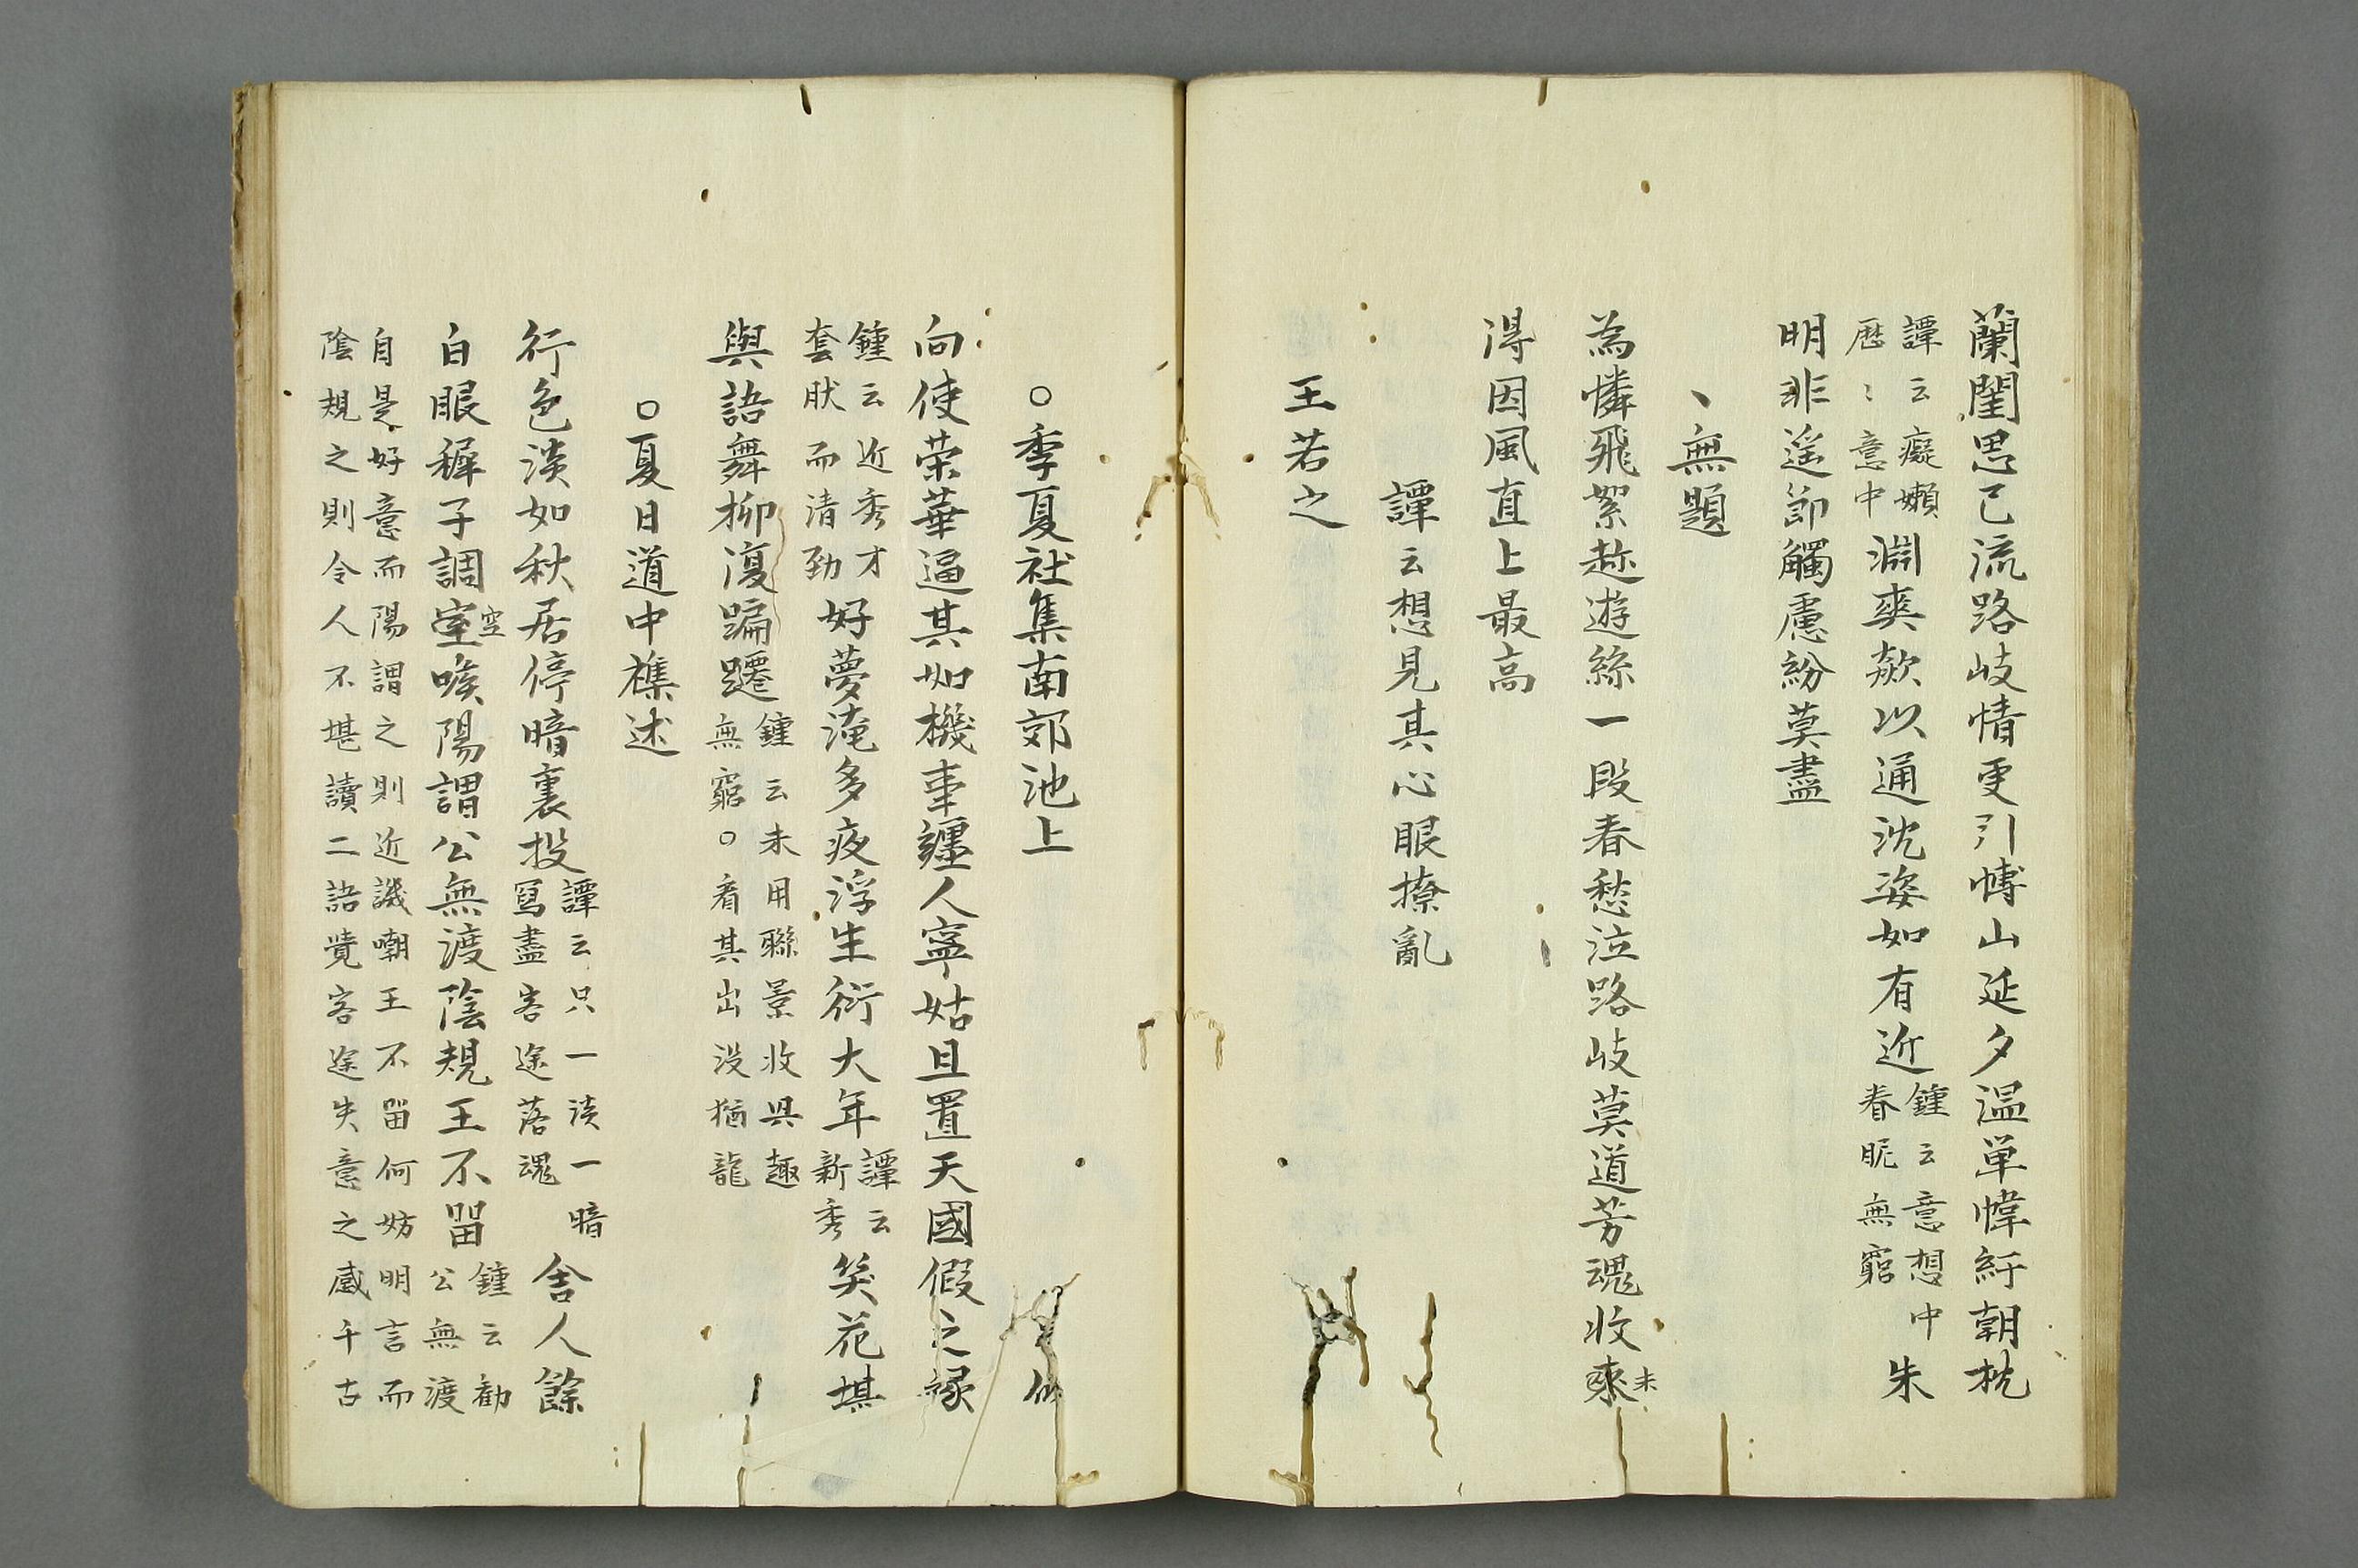 蘭閨思已流路岐情更引愽山延夕温単幃紆朝枕
譚云癡嬾
歴〻意中
淵爽欸以通沈姿如有近
鍾云意想中
眷眤無窮
朱
明非遥節觸慮紛莫盡
、無題
為憐飛絮趂遊絲一段春愁泣路岐莫道芳魂收來
未
得因風直上最高
譚云想見其心眼撩亂
王若之
○季夏社集南郊池上
向使荣華逼其如機事纏人寧姑且置天國假之縁
鍾云近秀才
套肰而清勁
好夢淹多夜浮生衍大年
譚云
新秀
笑花堪
與語舞柳復蹁躚
鍾云未用聯景收具趣
無窮○看其出没猶龍
○夏日道中樵述
行色淡如秋居停暗裏投
譚云只一淡一暗
寫盡客途落魂
舎人餘
白眼穉子調室喉陽謂公無渡陰規王不畱
空
鍾云勸
公無渡
自是好意而陽謂之則近譏嘲王不畱何妨明言而
陰規之則令人不堪讀二語覺客途失意之感千古